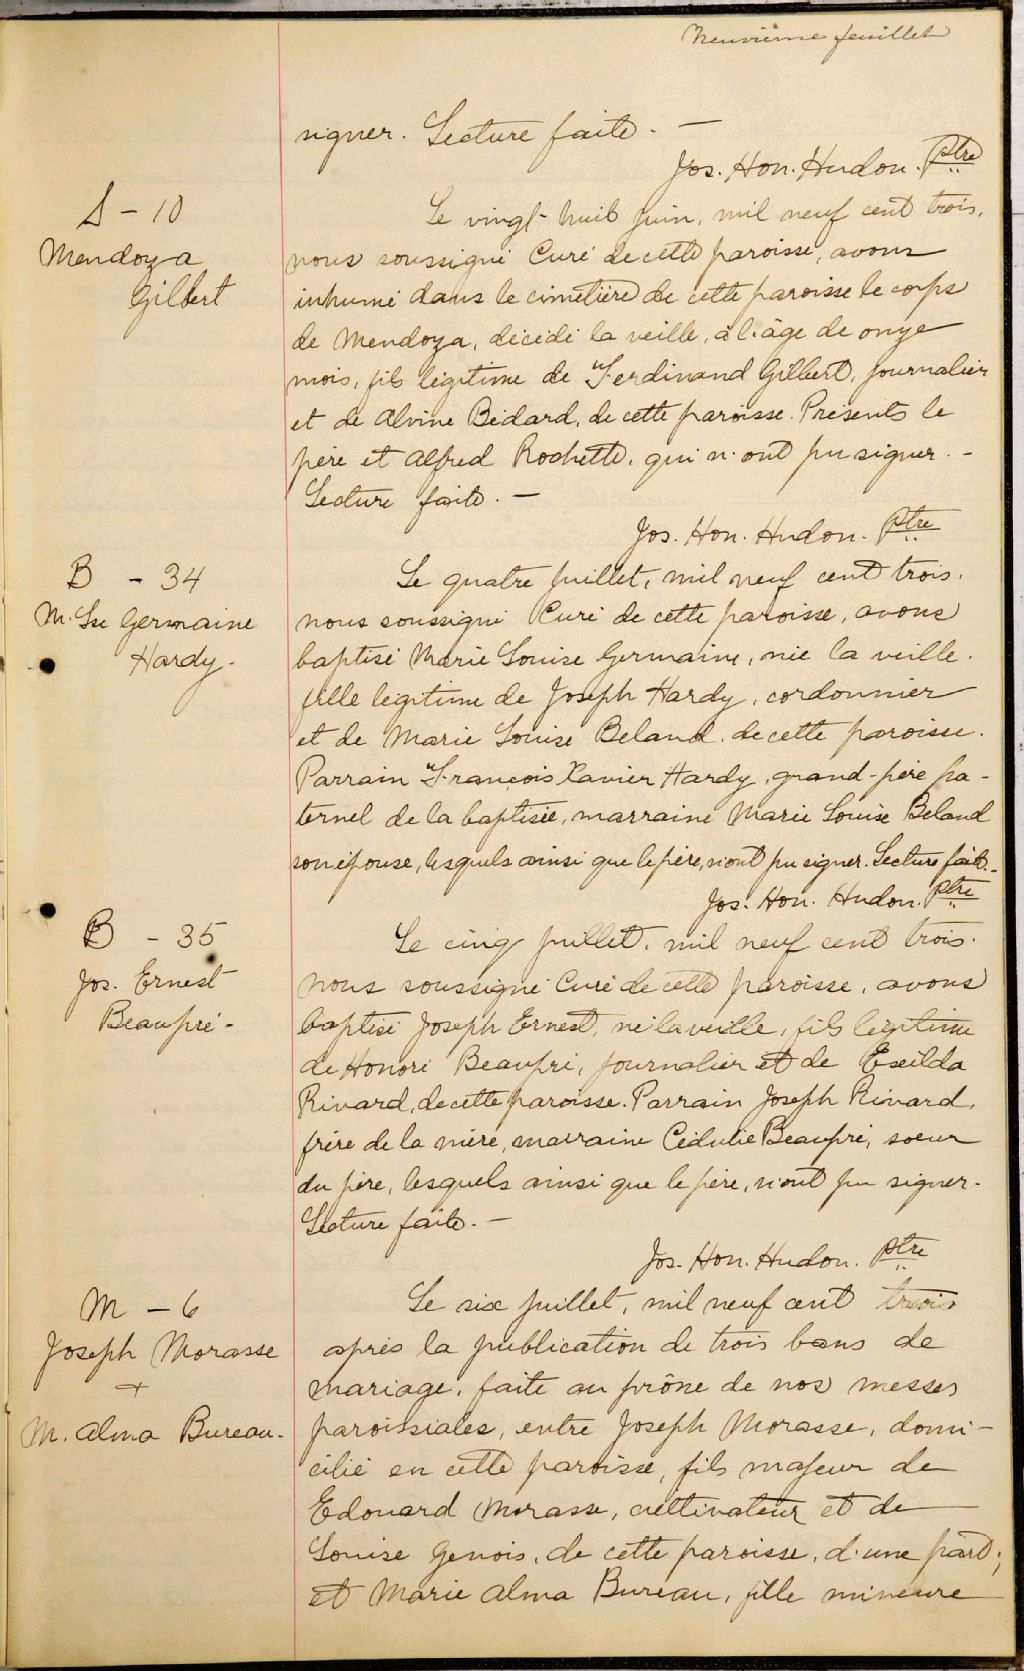 Neuvième feuillet
signer. Lecture faite. —
Jos. Hon. Hudon. Ptre
S - 10
Mendoza
Gilbert
Le vingt-huit juin, mil neuf cent trois,
nous soussigné Curé de cette paroisse, avons
inhumé dans le cimetière de cette paroisse le corps
de Mendoza, décédé la veille, à l'âge de onze
mois, fils légitime de Ferdinand Gilbert, journalier
et de Alvine Bédard, de cette paroisse. Présents le
père et Alfred Rochette, qui n'ont pu signer. -
Lecture faite. —
Jos. Hon. Hudon. Ptre
B - 34
M. Lse Germaine
Hardy.
Le quatre juillet, mil neuf cent trois.
nous soussigné Curé de cette paroisse, avons
baptisé Marie Louise Germaine, née la veille.
fille légitime de Joseph Hardy, cordonnier
et de Marie Louise Beland. de cette paroisse.
Parrain François Xavier Hardy, grand-père pa-
ternel de la baptisée, marraine Marie Louise Beland
son épouse, lesquels ainsi que le père, n'ont pu signer. Lecture faite. -
Jos. Hon. Hudon. Ptre
B - 35
Jos. Ernest
Beaupré -
Le cinq juillet, mil neuf cent trois.
nous soussigné Curé de cette paroisse, avons
baptisé Joseph Ernest, né la veille, fils légitime
de Honoré Beaupré, journalier et de Exeilda
Rivard, de cette paroisse. Parrain Joseph Rivard,
frère de la mère, marraine Cédulie Beaupré, soeur
du père, lesquels ainsi que le père, n'ont pu signer.
Lecture faite. —
Jos. Hon. Hudon. Ptre
M - 6
Joseph Morasse
+
M. Alma Bureau.
Le six juillet, mil neuf cent trois
après la publication de trois bans de
mariage, faite au prône de nos messes
paroissiales, entre Joseph Morasse, domi-
cilié en cette paroisse, fils majeur de
Edouard Morasse, cultivateur et de
Louise Genois, de cette paroisse, d'une part;
et Marie Alma Bureau, fille mineure